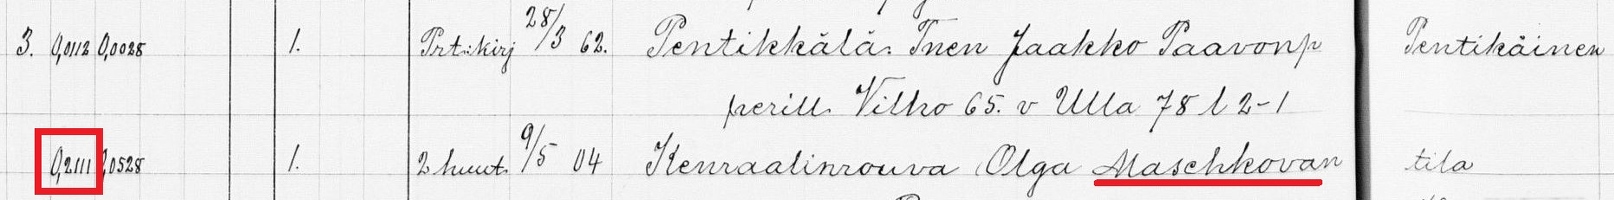 3. 0,0112 0,0028 1. Prt.kirj 28/3 62. Pentikkälä. Tnen Jaakko Paavonp Pentikäinen
perill. Vilho 65. v Ulla 78 l 2-1
0,2111 0,0528 1. 2 huut. 9/5 04 Kenraalinrouva Olga Maschkovan tila